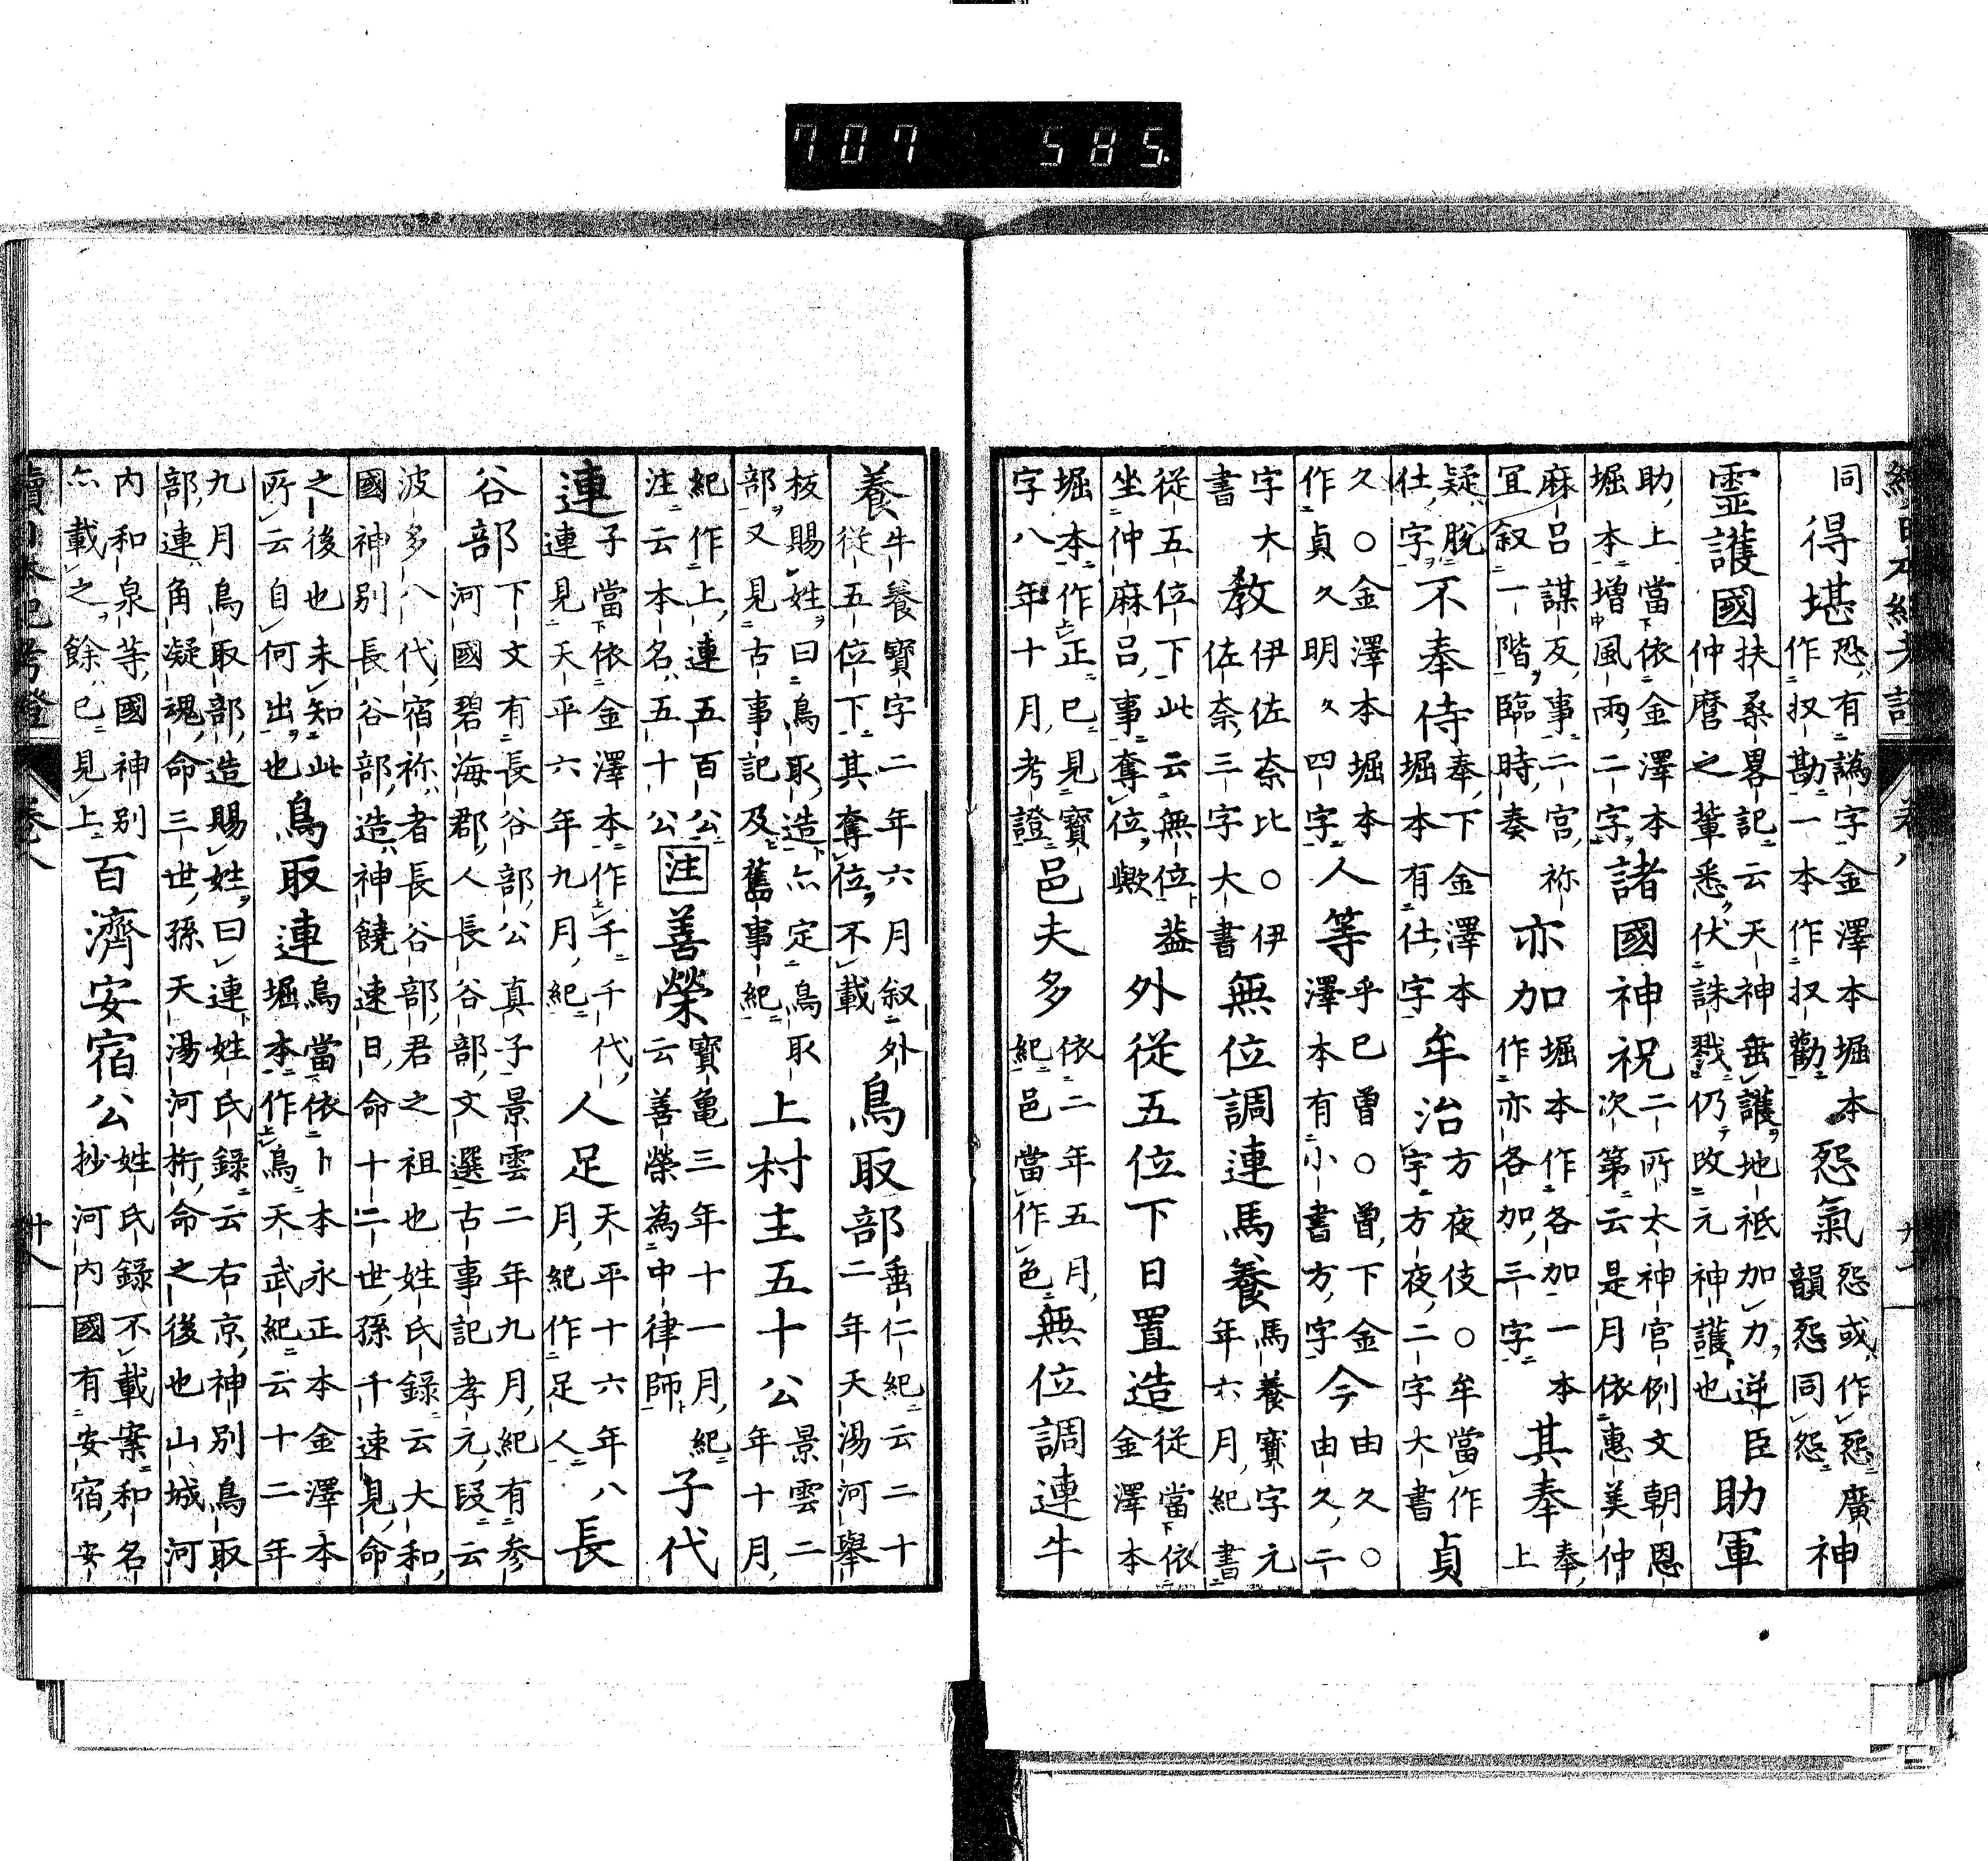 707 585.
續日本紀考證 卷八
同 得堪 恐有譌字金澤本堀本作扠勘一本作扠勸 怨氣 怨或作㤪廣韻㤪同怨 神
靈護國 扶桑畧記云天神垂護地祇加力逆臣仲麿之輩悉伏誅戮仍改元神護也 助軍
助上當依金澤本堀本增風雨二字 諸國神祝 二所太神宮例文朝恩次第云是月依惠美仲
麻呂謀反事二宮祢宜叙一階臨時奏 亦加 堀本作各加一本作亦各加三字 其奉 奉上
疑脫仕字 不奉侍 奉下金澤本堀本有仕字 牟治 方夜伎○牟當作字方夜二字大書 貞
久○金澤本堀本作貞久明久四字 人等 乎巳曾○曾下金澤本有小書方字 今 由久○由久二
字大書 敎 伊佐奈比○伊佐奈三字大書 無位調連馬養 馬養寶字元年六月紀書
從五位下此云無位蓋坐仲麻呂事奪位歟 外從五位下日置造 從當依金澤本
堀本作正巳見寶字八年十月考證 邑夫多 依二年五月紀邑當作色 無位調連牛
養 牛養寶字二年六月叙外從五位下其奪位不載 鳥取部 垂仁紀云二十二年天湯河擧
板賜姓曰鳥取造亦定鳥取部又見古事記及舊事紀 上村主五十公 景雲二年十月
紀作上連五百公注云本名五十公 注 善榮 寶龜三年十一月紀云善榮為中律師 子代
連 子當依金澤本作千千代連見天平六年九月紀 人足 天平十六年八月紀作足人 長
谷部 下文有長谷部公真子景雲二年九月紀有參河國碧海郡人長谷部文選古事記孝元段云
波多八代宿祢者長谷部君之祖也姓氏錄云大和國神別長谷部造神饒速日命十二世孫千速見命
之後也未知此所云自何出也 鳥取連 鳥當依卜本永正本金澤本堀本作鳥天武紀云十二年
九月鳥取部造賜姓曰連姓氏錄云右京神別鳥取部連角凝魂命三世孫天湯河桁命之後也山城河
內和泉等國神別亦載之餘巳見上 百濟安宿公 姓氏錄不載案和名抄河內國有安宿安
續日本紀考證 卷八 卅八